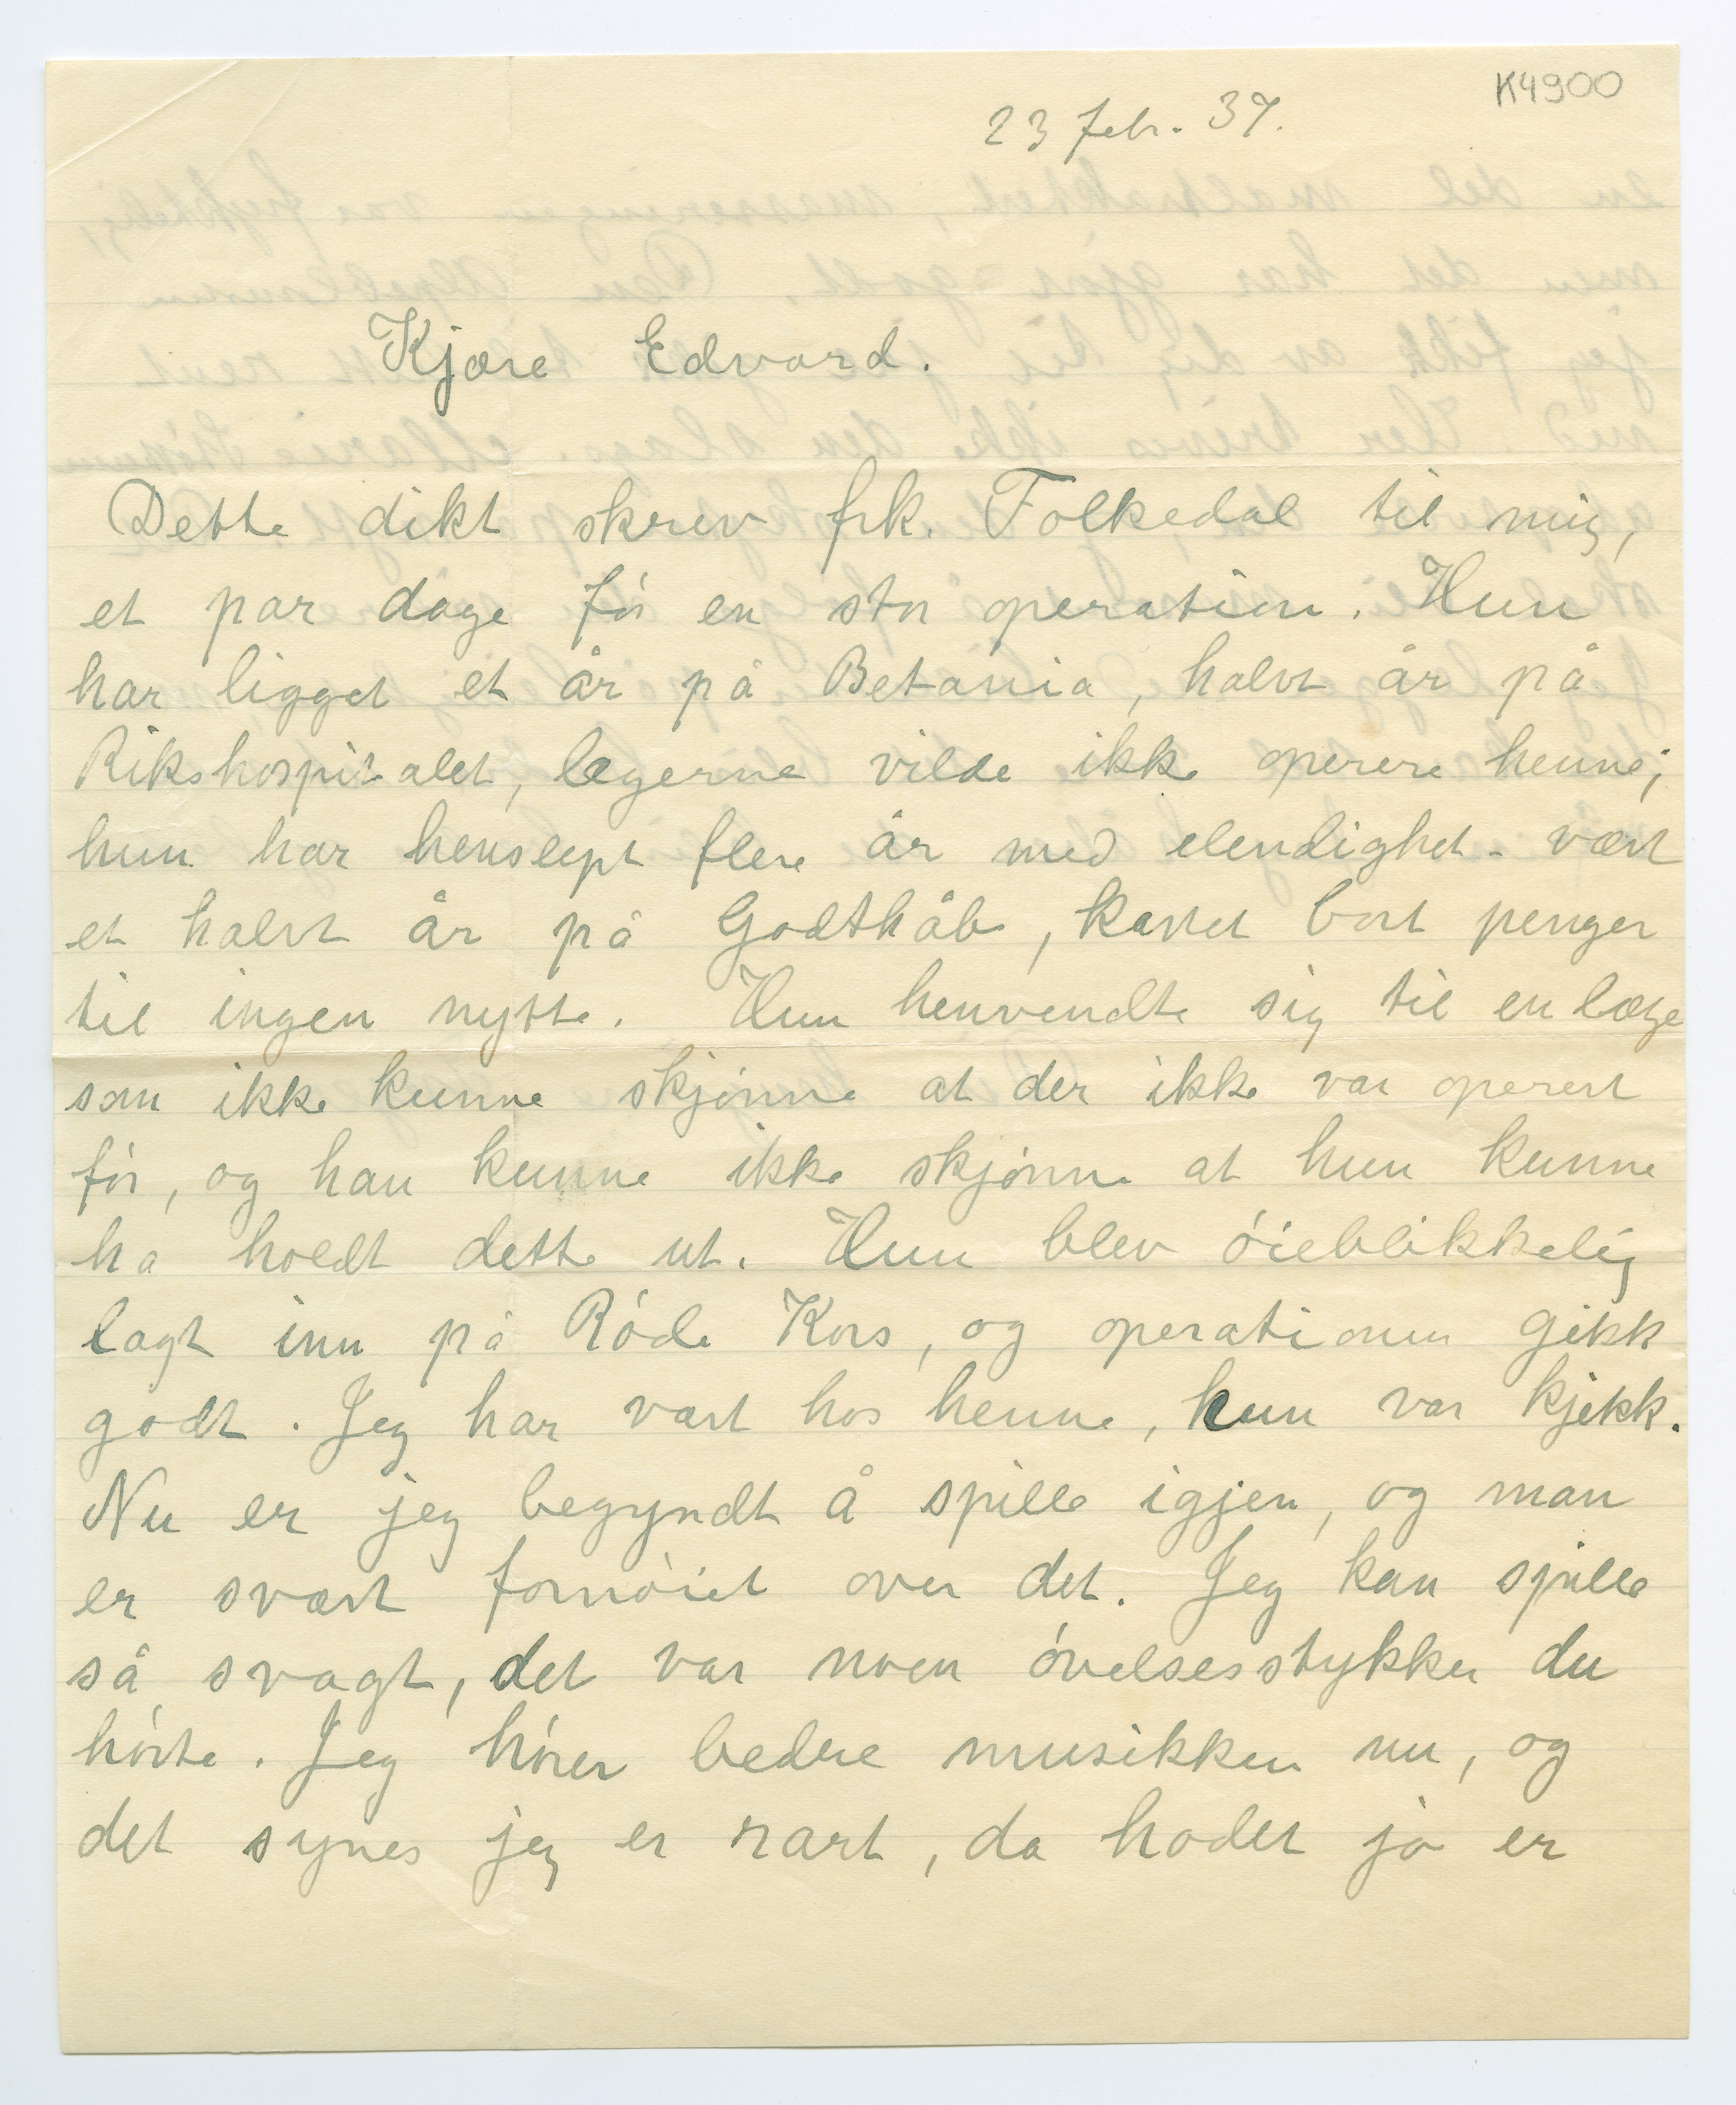 K4900
23 febr. 37.
Kjære Edvard.
Dette dikt skrev frk. Folkedal til mig,
et par dage før en stor operation. Hun
har ligget et år på Betania, halvt år på
Rikshospitalet, lægerne vilde ikke operere henne;
hun har henslept flere år med elendighet - vært
et halvt år på Godthåb, kastet bort penger
til ingen nytte. Hun henvendte sig til en læge
som ikke kunne skjønne at der ikke var operert
før, og han kunne ikke skjønne at hun kunne
ha holdt dette ut. Hun blev øieblikkelig
lagt inn på Røde Kors, og operationen gikk
godt. Jeg har vært hos henne, hun var kjekk.
Nu er jeg begyndt å spille igjen, og man
er svært fornøiet over det. Jeg kan spille
så svagt, det var noen øvelsesstykker du
hørte. Jeg hører bedre musikken nu, og
det synes jeg er rart, da hodet jo er